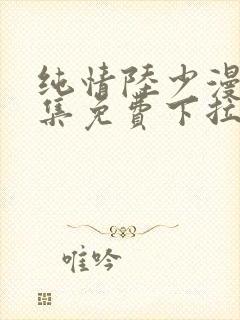 纯情陆少漫
集免费下拉
唯吟